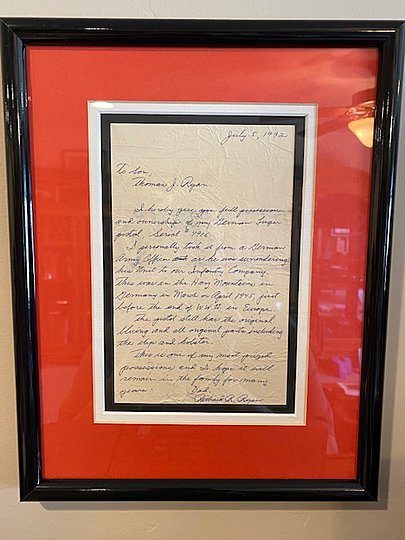 July 5, 1992
To Son,
Thomas J. Ryan
I hereby give you full possession
and ownership of my German Luger
pistol Serial # 4916.
I personally took it from a German
Army Officer as he was surrendering
his Unit to our Infantry Company.
this was in the Harz Mountains in
Germany in March or April 1945 just
before the end of WW II in Europe.
the pistol still has the original
bluing and all original parts including
the clip and holster.
this is one of my most prized
possessions and I hope it will
remain in the family for many
years.
Dad
R. Ryan